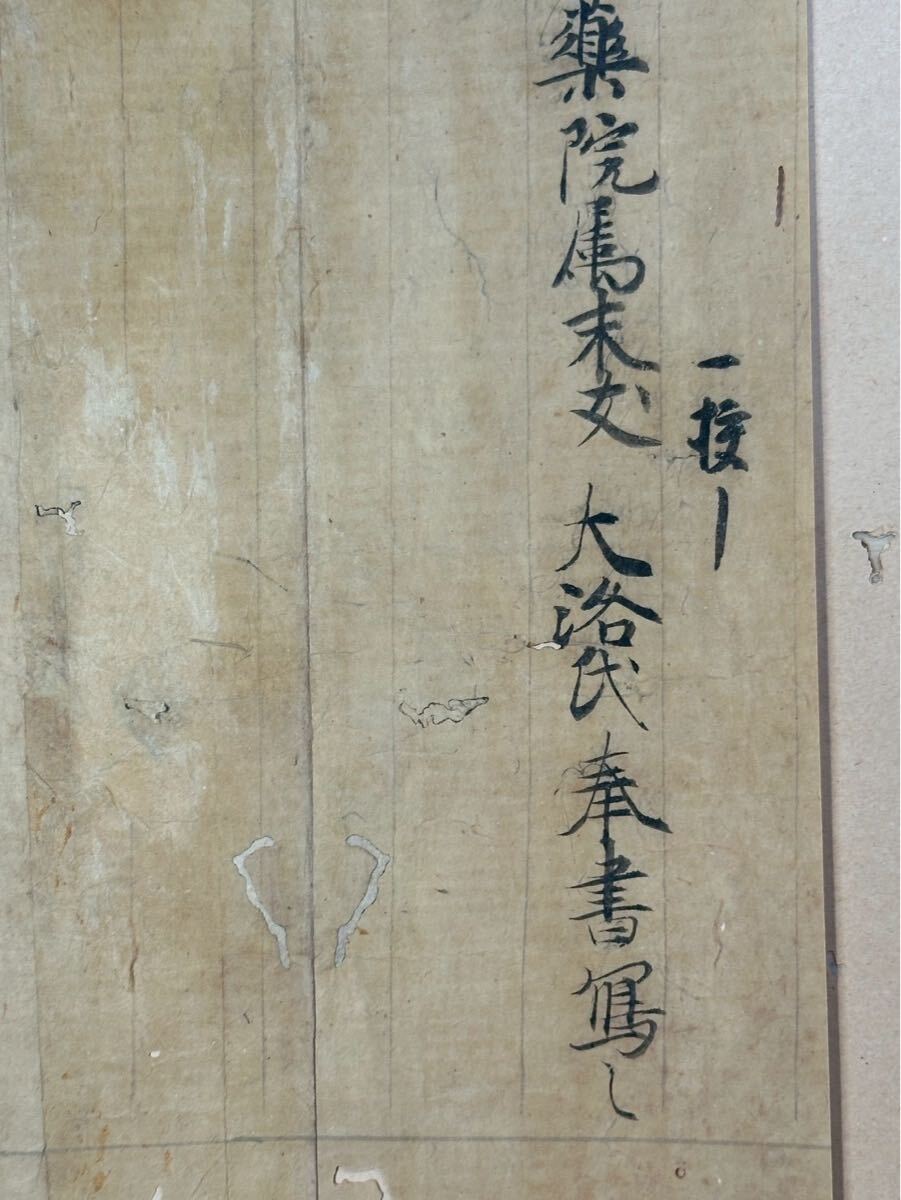 一挍了
藥院属末友 大洛氏 奉書寫之